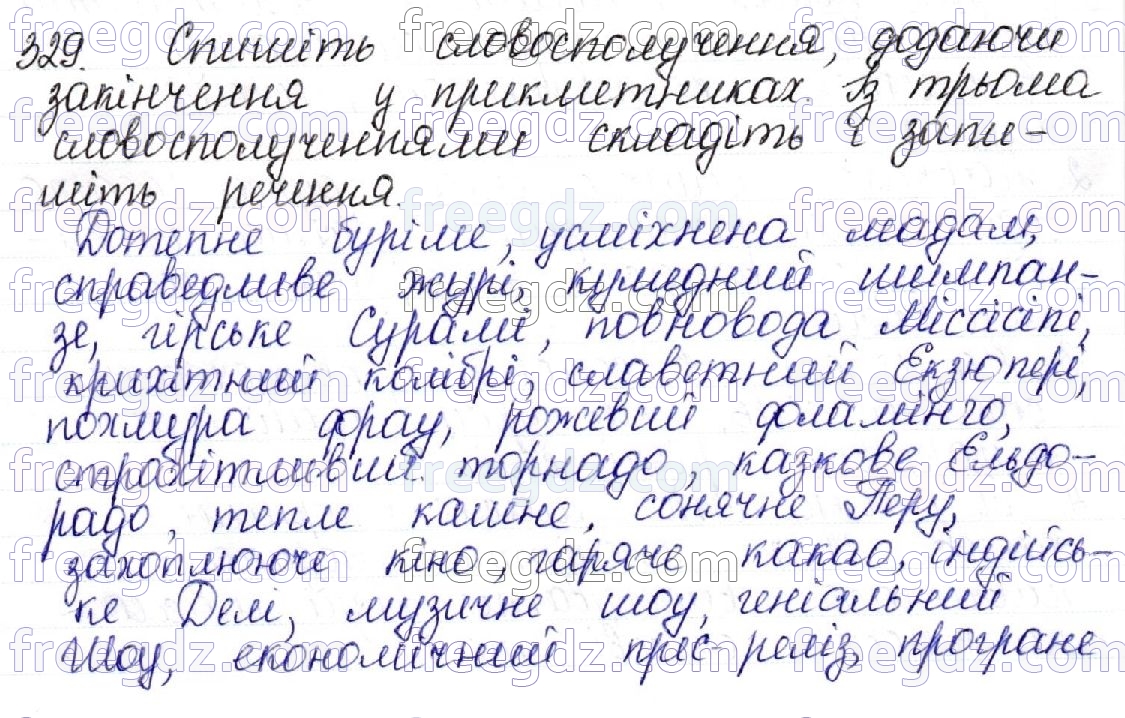 329. Спишіть словосполучення, додаючи
закінчення у прикметниках. Із трьома
словосполученнями складіть і запи-
шіть речення.
Дотепне буріме, усміхнена мадам,
справедливе журі, кумедний шимпан-
зе, гірське Сурамі, повновода Міссісіпі,
крихітний колібрі, славетний Екзюпері,
похмура фрау, рожевий фламінго,
страхітливий торнадо, казкове Ельдо-
радо, тепле кашне, сонячне Перу,
захоплююче кіно, гаряче какао, індійсь-
ке Делі, музичне шоу, геніальний
Шоу, економічний прес-реліз, програне